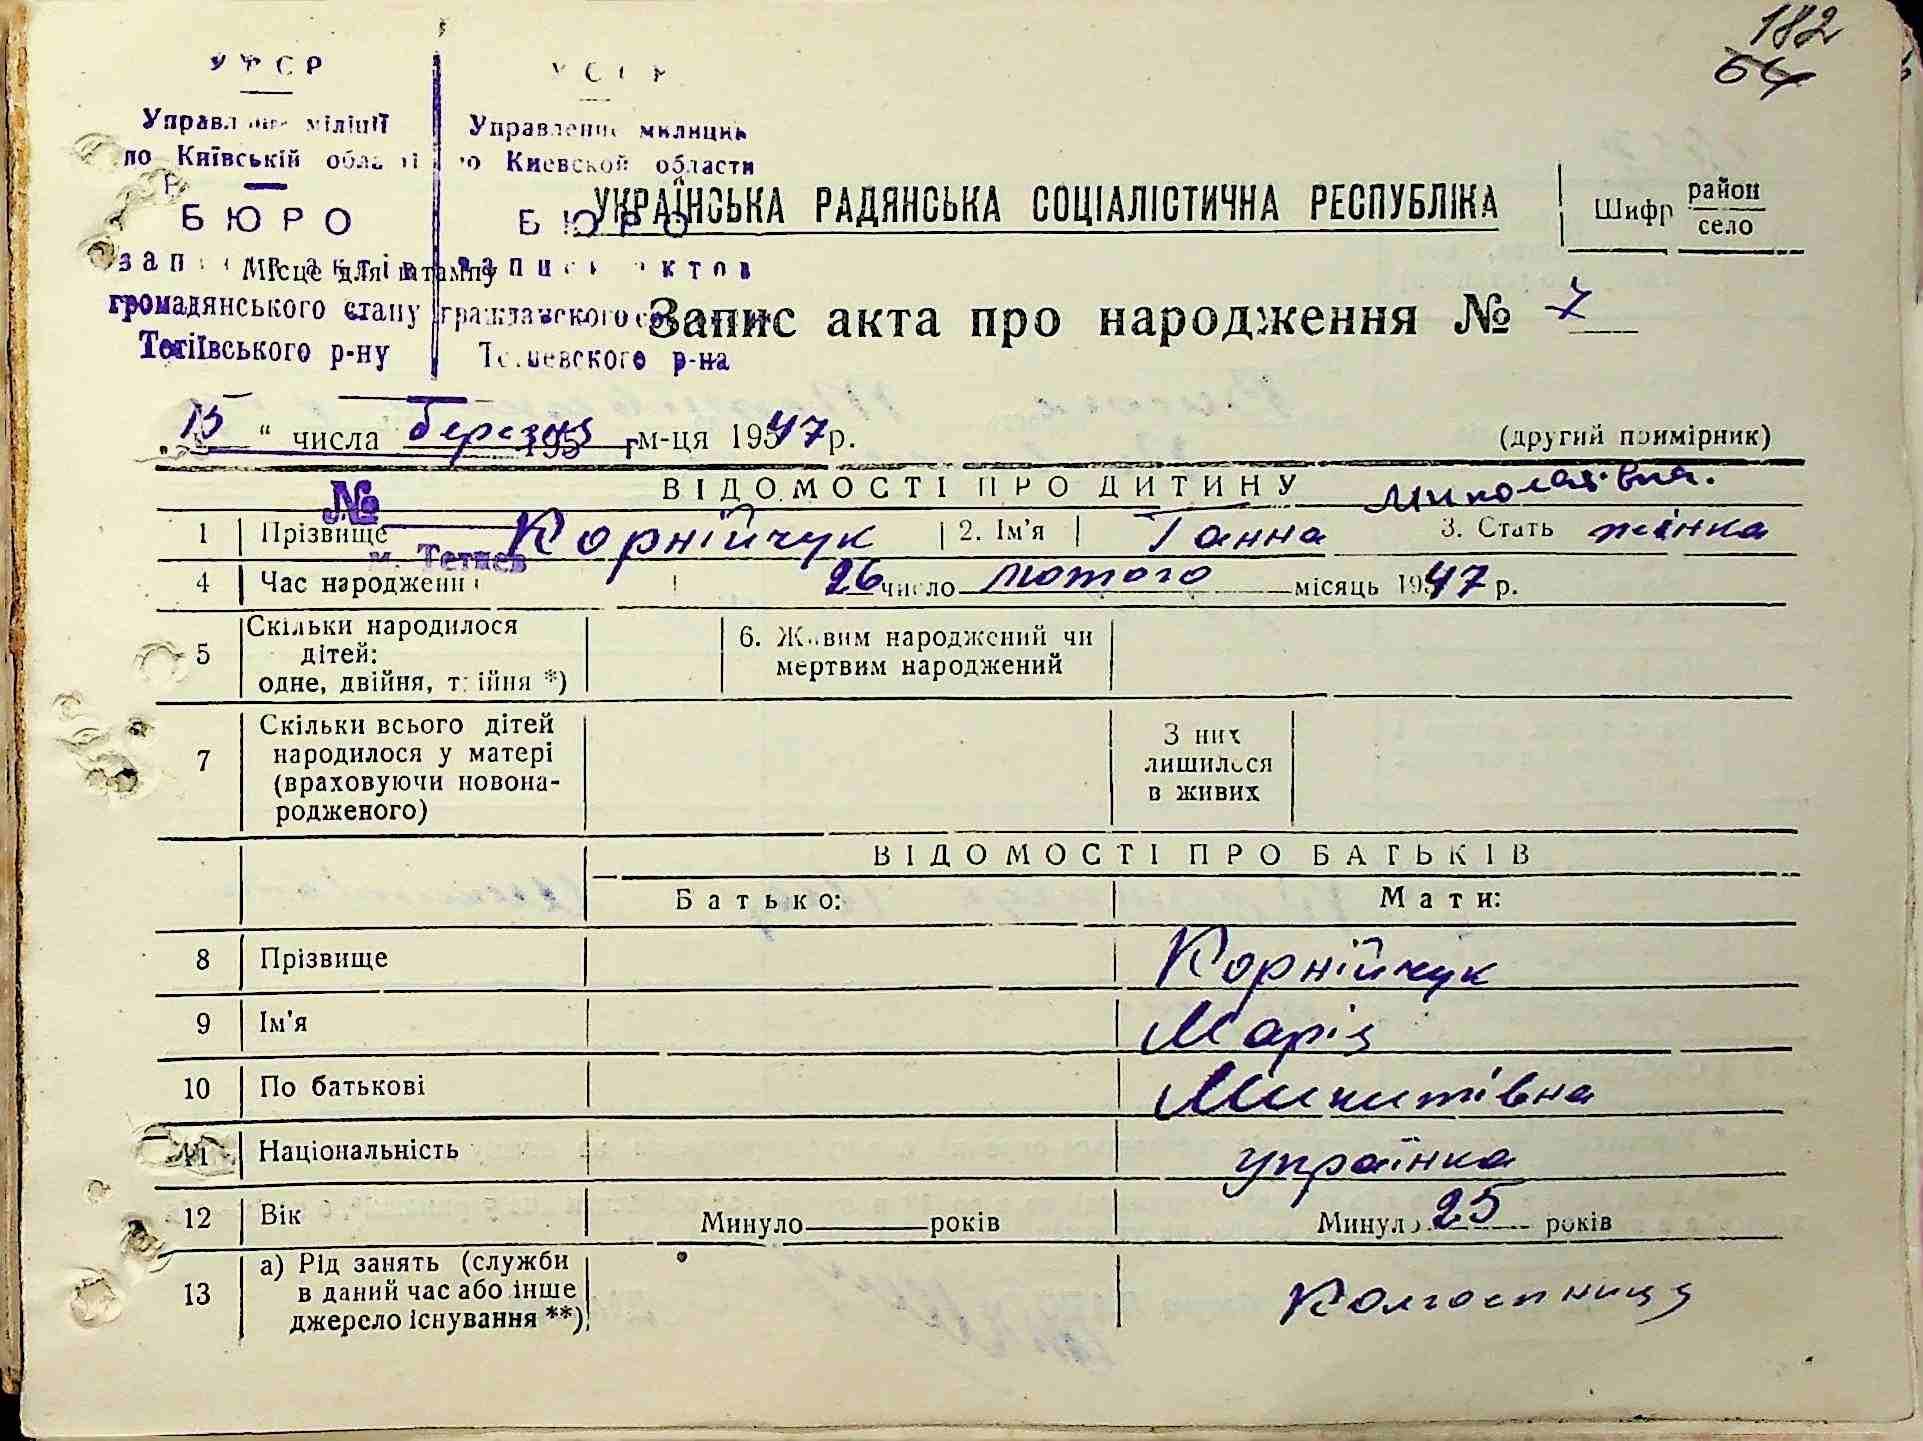 182
64
УРСР
Управління міліції
по Київській області
БЮРО
запису актів
громадянського стану
Тетіївського р-ну
УССР
Управление милиции
по Киевской области
БЮРО
записи актов
гражданского
Тетиевского р-на
195 г.
№
м. Тетиев
Місце для штампу
УКРАЇНСЬКА РАДЯНСЬКА СОЦІАЛІСТИЧНА РЕСПУБЛІКА
Шифр район
село
Запис акта про народження № 7
"15" числа березня м-ця 1947 р.
(другий примірник)
ВІДОМОСТІ ПРО ДИТИНУ
Миколаївна.
1 Прізвище Корнійчук 2. Ім'я Ганна 3. Стать жінка
4 Час народження 26 число лютого місяць 1947 р.
5 Скільки народилося
дітей:
одне, двійня, трійня *)
6. Живим народжений чи
мертвим народжений
7 Скільки всього дітей
народилося у матері
(враховуючи новона-
родженого)
З них
лишилося
в живих
ВІДОМОСТІ ПРО БАТЬКІВ
Батько: Мати:
8 Прізвище Корнійчук
9 Ім'я Марія
10 По батькові Микитівна
11 Національність українка
12 Вік Минуло років Минуло 25 років
13 а) Рід занять (служби
в даний час або інше
джерело існування **)
Колгоспниця